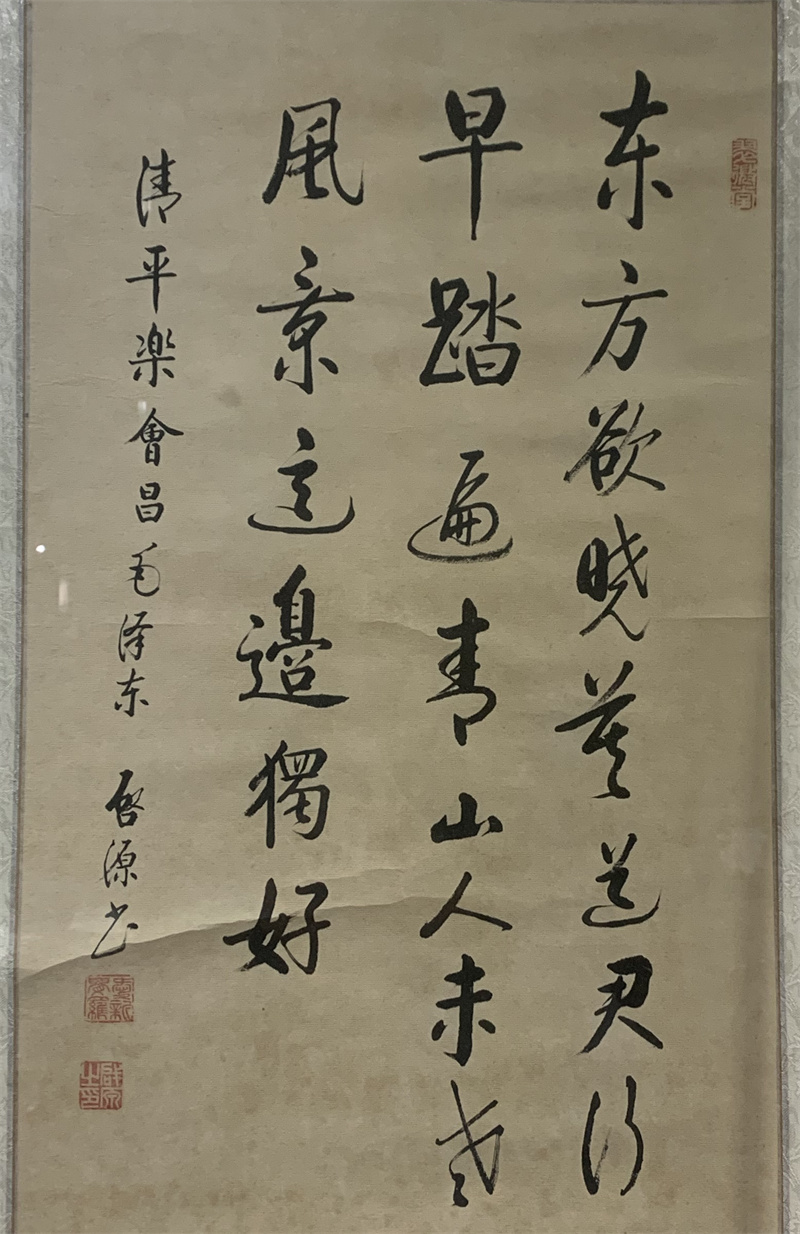 东方欲晓莫道君行
早踏遍青山人未老
風景这邊獨好
清平楽會昌毛泽东 启源书